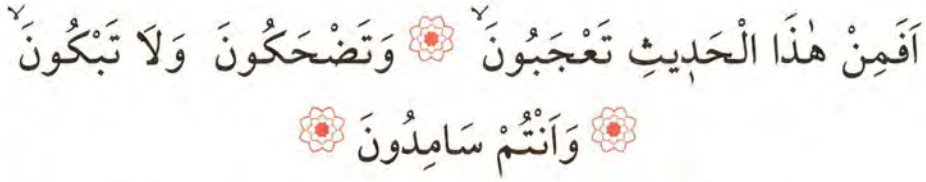 اَفَمِنْ هٰذَا الْحَدٖيثِ تَعْجَبُونَۙ ۞ وَتَضْحَكُونَ وَلَا تَبْكُونَۙ
۞ وَاَنْتُمْ سَامِدُونَ ۞